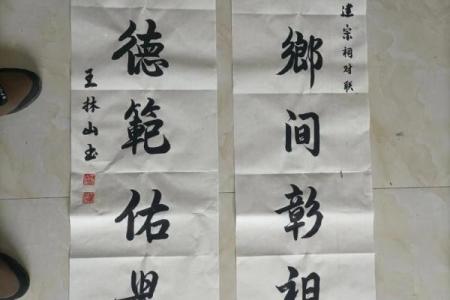 建宗相对联
鄉间彰祖
德範佑
王林山书